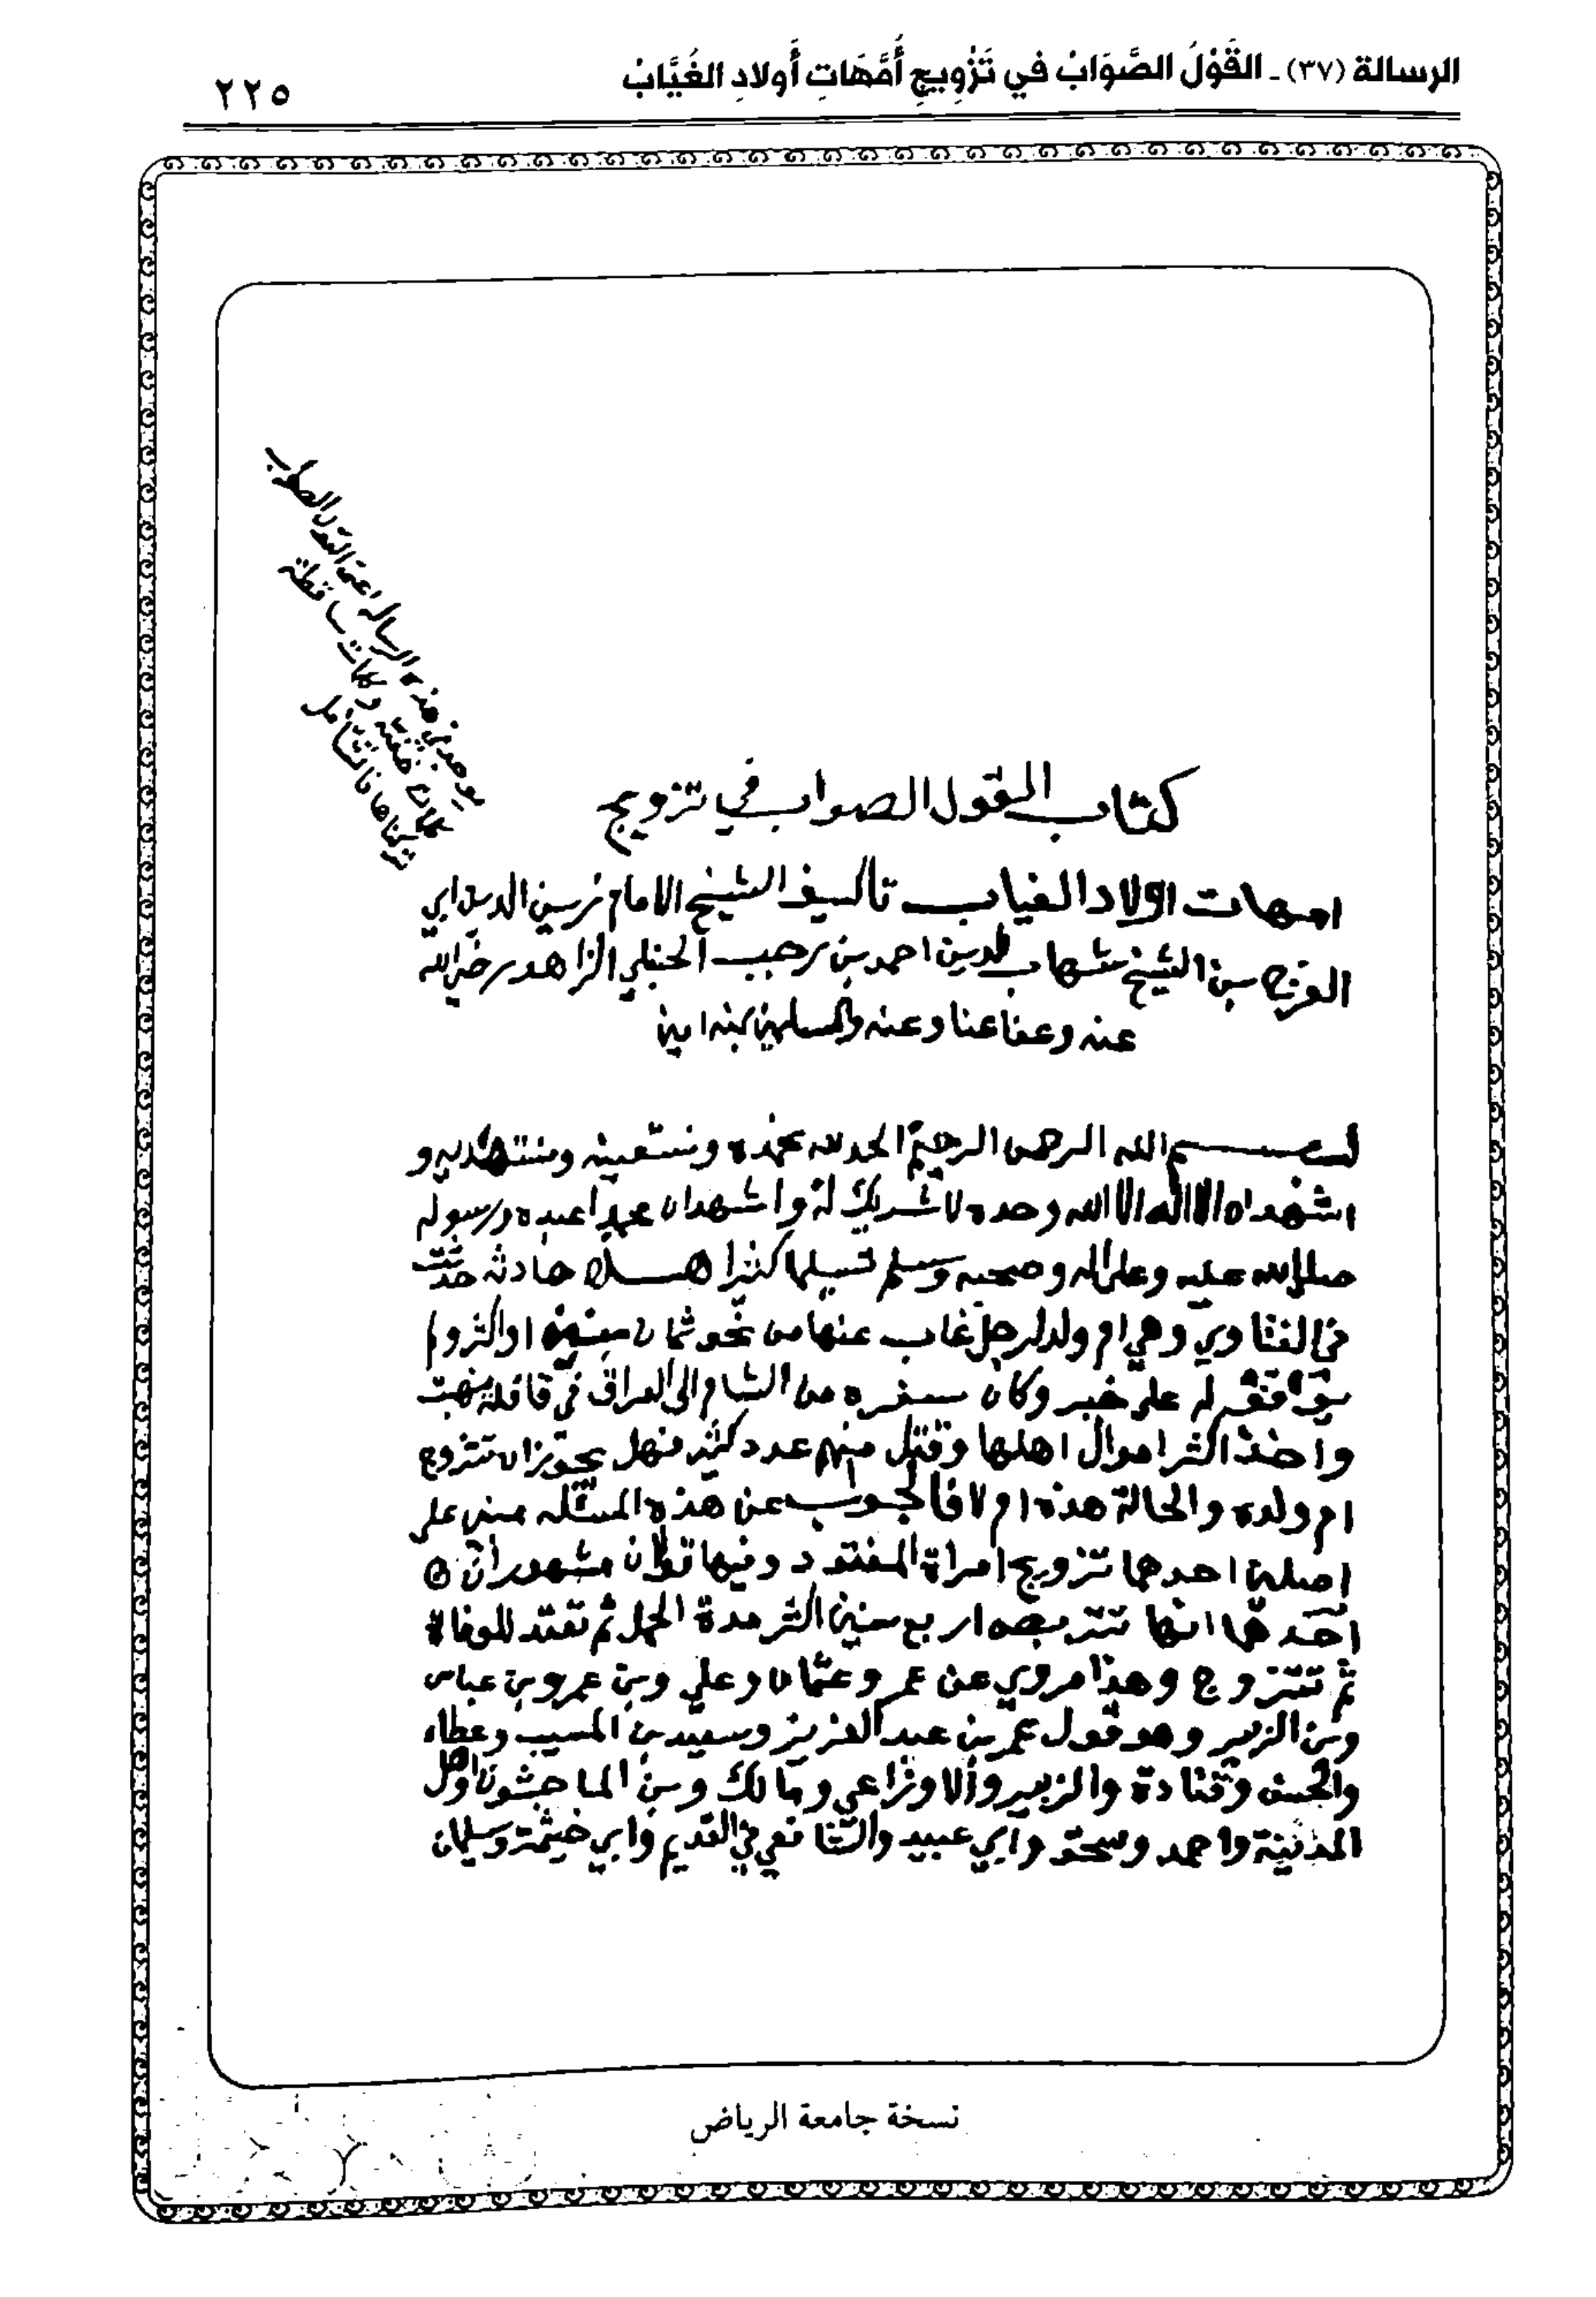 الرسالة (٣٧) ـ القَوْلُ الصَّوَابُ في تَزْوِيجِ أُمَّهَاتِ أَولادِ الغُيَّابُ
٢٢٥
يوجد في هذه الرسالة اعني القول الصواب
كلمات ساقطة
كتاب القول الصواب في تزويج
امهات اولاد الغياب تاليف الشيخ الامام زين الدين ابي
الفرج بن الشيخ شهاب الدين احمد بن رجب الحنبلي الزاهد رضي الله
عنه وعفا عنا وعنه والمسلمين بمنه امين
بسم الله الرحمن الرحيم الحمد لله نحمده ونستعينه ونستهديه و
اشهد ان لا اله الا الله وحده لا شريك له واشهد ان محمدا عبده ورسوله
صلى الله عليه وعلى اله وصحبه وسلم تسليما كثيرا هذه حادثة حدثت
في الفتاوي وهي ام ولد لرجل غاب عنها من نحو ثمان سنين او اكثر ولم
يوافق له على خبر وكان سفره من الشام الى العراق في قافلة نهبت
واخذ اكثر اموال اهلها وقتل منهم عدد كثير فهل يجوز ان تتزوج
ام ولده والحالة هذه ام لا فالجواب عن هذه المسئله مبني على
اصلين احدهما تزويج امراة المفقود وفيها قولان مشهوران
احدهما انها تتربص اربع سنين اكثر مدة الحمل ثم تعتد للوفاة
ثم تتزوج وهذا مروي عن عمر وعثمان وعلي وبن عمر وبن عباس
وبن الزبير وهو قول عمر بن عبد العزيز وسعيد بن المسيب وعطاء
والحسن وقتادة والزبير والاوزاعي ومالك وبن الماجشون واهل
المدنية واحمد وسحق وابي عبيد والشافعي في القديم وابي خيثمة وسليمان
نسخة جامعة الرياض